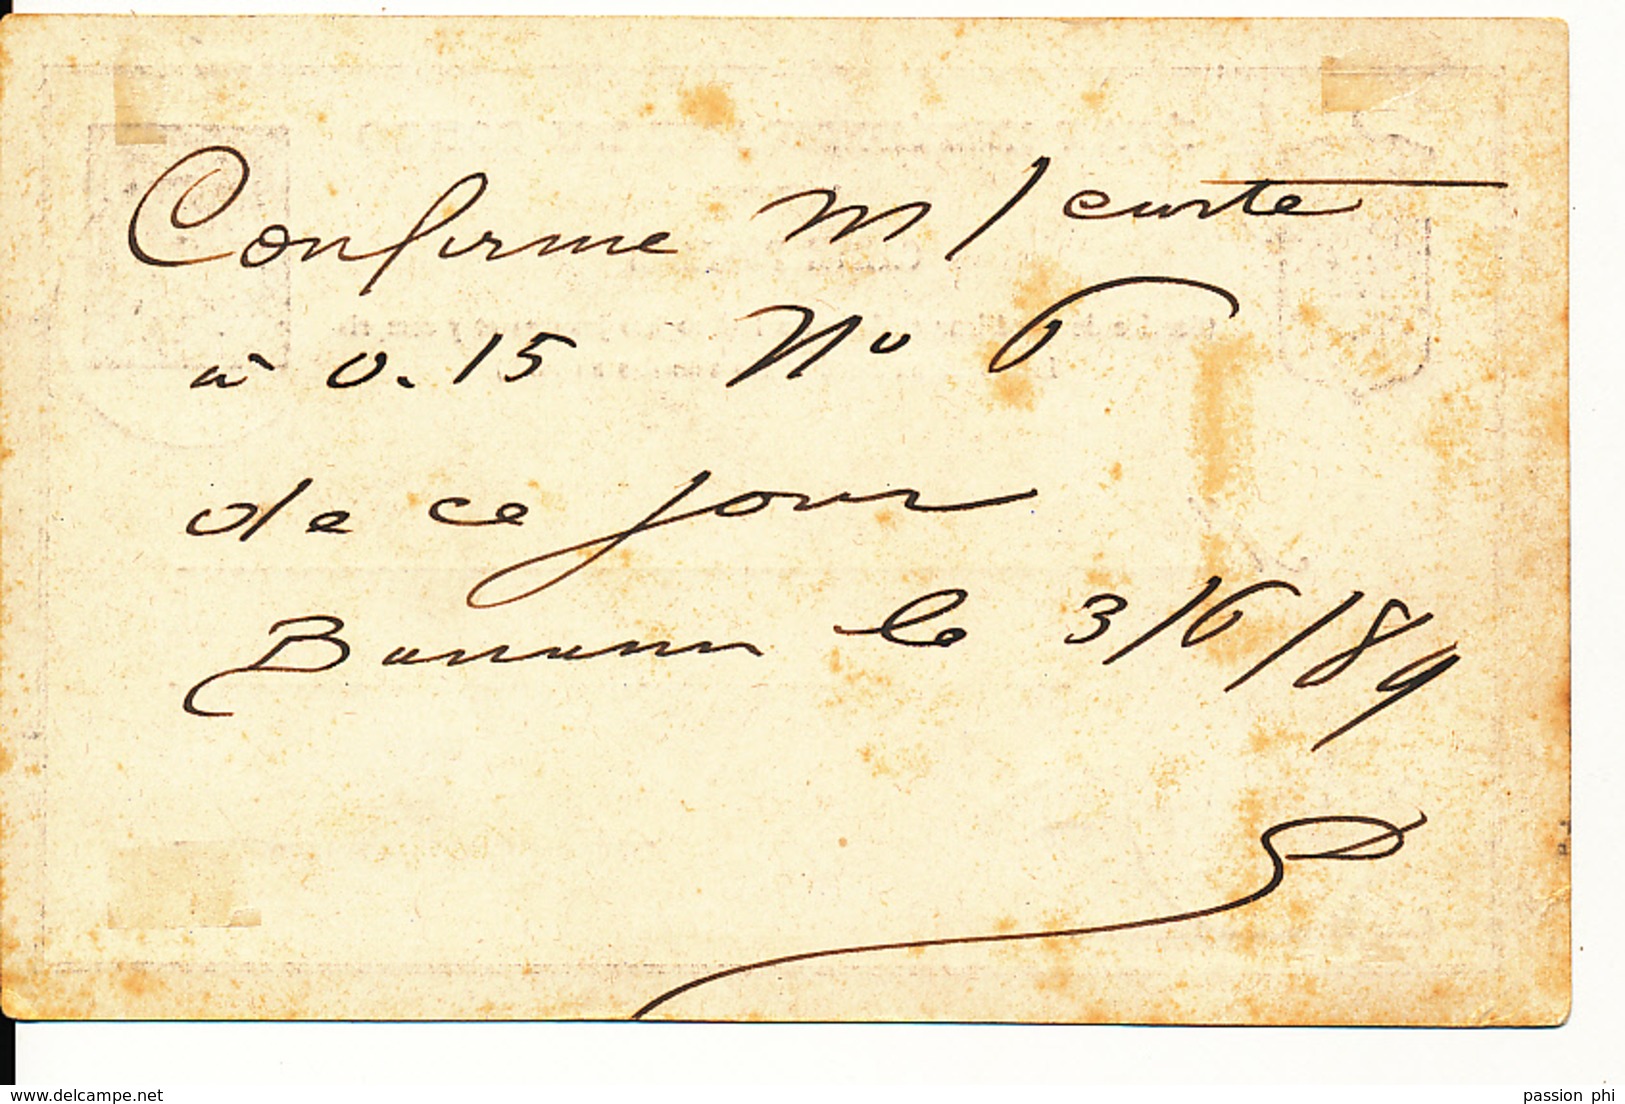 Confirme m/ carte
à 0.15 No 6
de ce jour
Banana le 3/6/89
passion phi